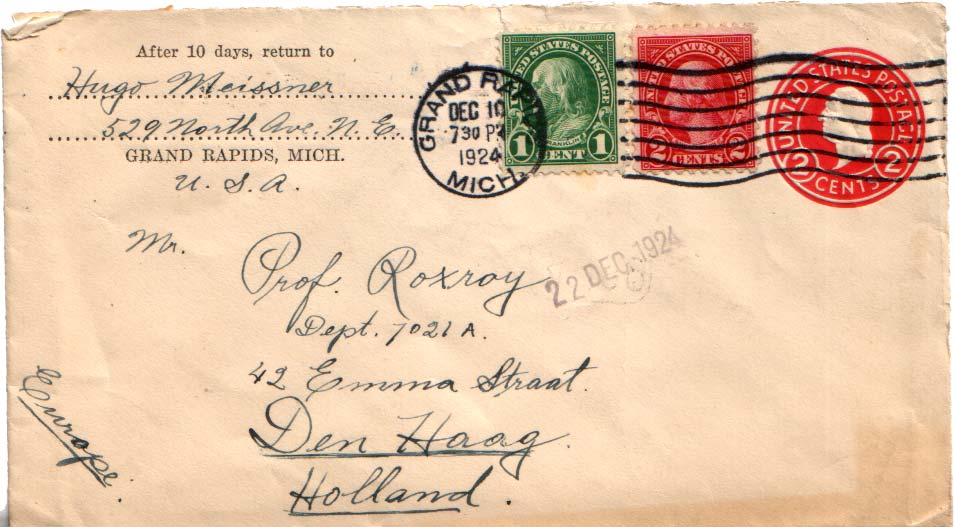 After 10 days, return to
Hugo Meissner
529 North Ave. N.E.
GRAND RAPIDS, MICH.
U. S. A.
GRAND RAPI
DEC 10
730 P
1924
MICH.
UNITED STATES POSTAGE
FRANKLIN
1 CENT 1
UNITED STATES POSTAGE
2 CENTS 2
UNITED STATES POSTAGE
2 CENTS 2
22 DEC. 1924
Mr.
Prof. Roxroy
Dept. 7021 A.
42 Emma Straat.
Den Haag.
Holland.
Europe.